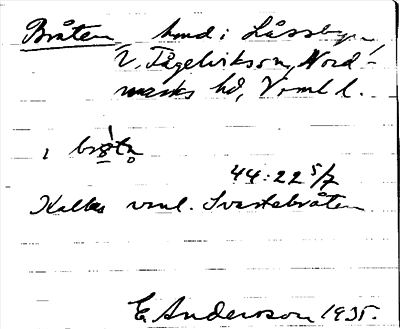 Bråten, hmd i Låssbyn,
V. Fågelviks sn, Nord-
marks hd, Vrml l.
i bråtn
44:22 5/7
Kallas vanl. Svartebråten
E Anderson 1935.